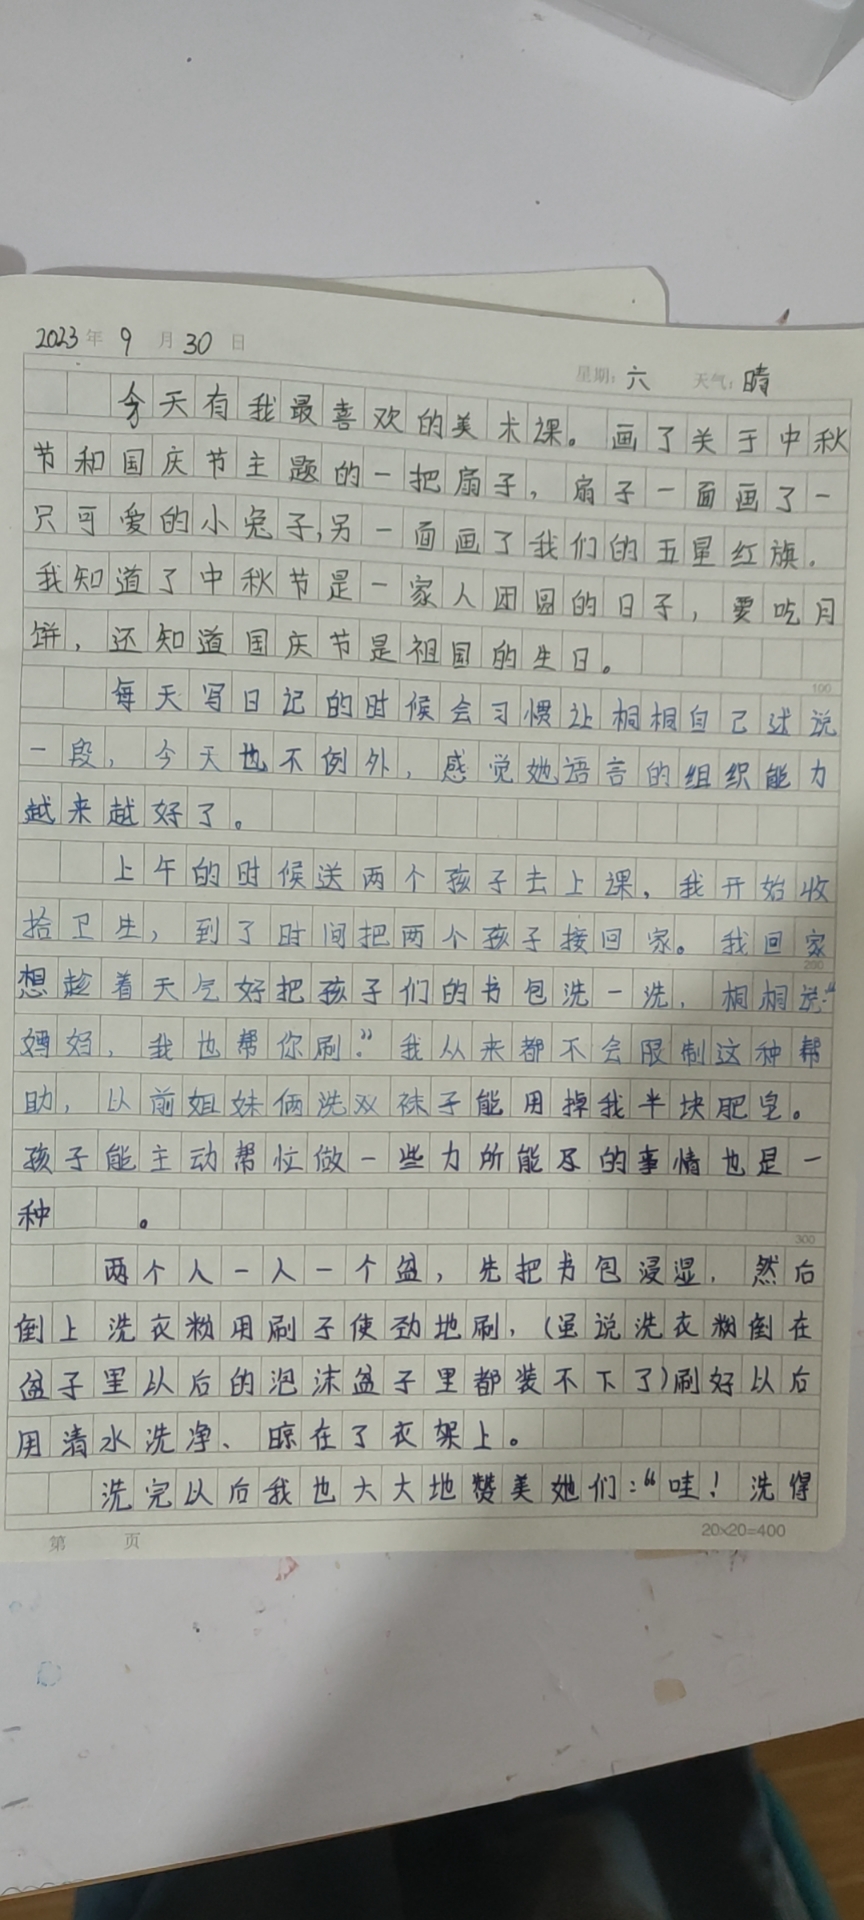 2023年 9 月 30 日
星期：六 天气：晴
今天有我最喜欢的美术课。画了关于中秋
节和国庆节主题的一把扇子，扇子一面画了一
只可爱的小兔子，另一面画了我们的五星红旗。
我知道了中秋节是一家人团圆的日子，要吃月
饼，还知道国庆节是祖国的生日。
100
每天写日记的时候会习惯让桐桐自己述说
一段，今天也不例外，感觉她语言的组织能力
越来越好了。
上午的时候送两个孩子去上课，我开始收
拾卫生，到了时间把两个孩子接回家。我回家
200
想趁着天气好把孩子们的书包洗一洗，桐桐说：“
妈妈，我也帮你刷。”我从来都不会限制这种帮
助，以前姐妹俩洗双袜子能用掉我半块肥皂。
孩子能主动帮忙做一些力所能及的事情也是一
种 。
300
两个人一人一个盆，先把书包浸湿，然后
倒上洗衣粉用刷子使劲地刷，（虽说洗衣粉倒在
盆子里以后的泡沫盆子里都装不下了）刷好以后
用清水洗净、晾在了衣架上。
洗完以后我也大大地赞美她们：“哇！洗得
第 页
20×20=400